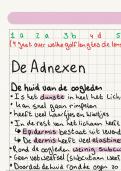 1 a 2 a 3 b 4 d 5
(4 gaat over welke golflengtes de
De Adnexen
De huid van de oogleden
• Is het dunste in heel het lich
• Kan snel gaan rimpelen
• Heeft veel haartjes en kliertjes
• In de rest van het lichaam heeft
→ Epidermis bestaat uit
→ De dermis heeft veel elastine
• Rond de oogleden weinig subcu
• Geen vetweefsel (subcutaan weef
• Doordat de huid rondde ogen zo